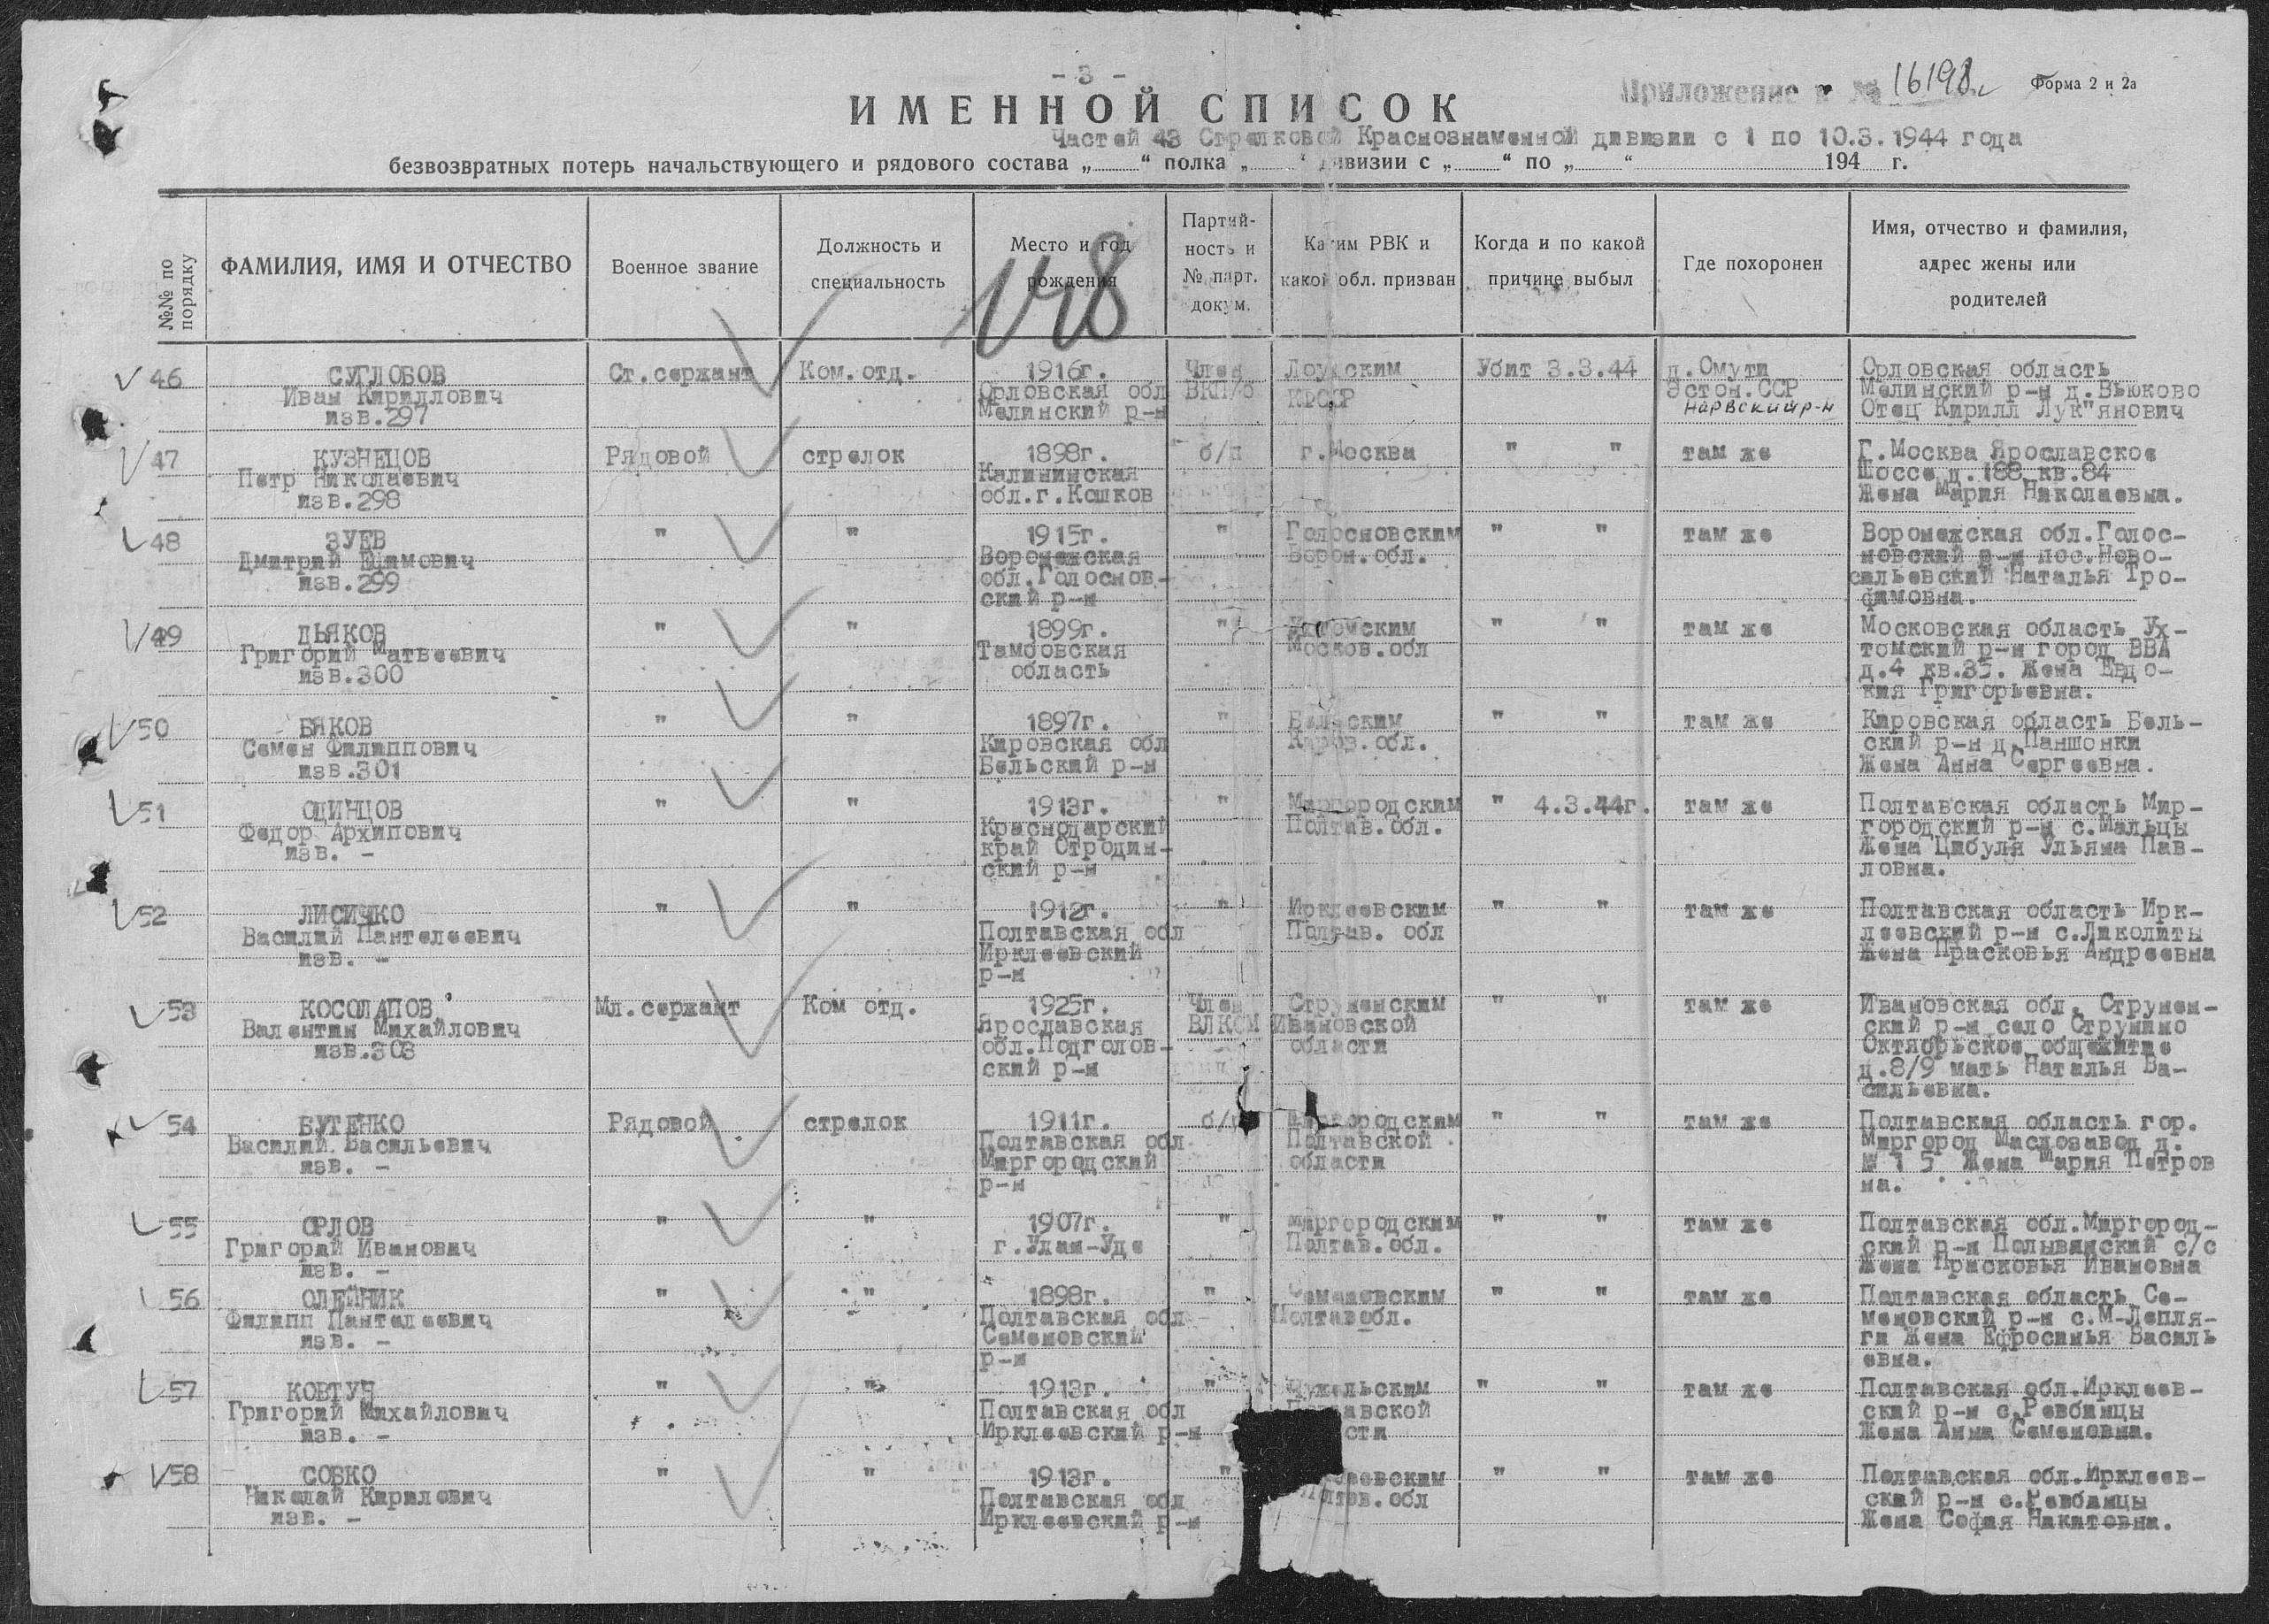 - 3 -
Приложение к № 16198с
Форма 2 и 2а
ИМЕННОЙ СПИСОК
Частей 43 Стрелковой Краснознаменной дивизии с 1 по 10.3.1944 года
безвозвратных потерь начальствующего и рядового состава „ “ полка „ “ дивизии с „ “ по „ “ 194 г.
№№ по порядку
ФАМИЛИЯ, ИМЯ И ОТЧЕСТВО
Военное звание
Должность и специальность
Место и год рождения
Партийность и № парт. докум.
Каким РВК и какой обл. призван
Когда и по какой причине выбыл
Где похоронен
Имя, отчество и фамилия, адрес жены или родителей
148
46 СУГЛОБОВ Ст.сержант Ком.отд. 1916г. Член Лоухским Убит 3.3.44 д.Омути Орловская область
Иван Кириллович Орловская обл ВКП/б КФССР Эстон.ССР Мелинский р-н д.Вьюково
изв.297 Мелинский р-н Нарвский р-н Отец Кирилл Лук"янович
47 КУЗНЕЦОВ Рядовой стрелок 1898г. б/п г.Москва " " там же Г.Москва Ярославское
Петр Николаевич Калининская Шоссе д.188 кв.84
изв.298 обл.г.Кошков Жена Мария Николаевна.
48 ЗУЕВ " " 1915г. " Голосновским " " там же Воронежская обл.Голос-
Дмитрий Ефимович Воронежская Ворон.обл. новский р-н пос.Ново-
изв.299 обл.Голоснов- сильевский Наталья Тро-
ский р-н фимовна.
49 ДЬЯКОВ " " 1899г. " Ухтомским " " там же Московская область Ух-
Григорий Матвеевич Тамбовская Москов.обл томский р-н город ВВА
изв.300 область д.4 кв.35. Жена Евдо-
кия Григорьевна.
50 БЯКОВ " " 1897г. " Бельским " " там же Кировская область Бель-
Семен Филиппович Кировская обл Киров.обл. ский р-н д.Паншонки
изв.301 Бельский р-н Жена Анна Сергеевна.
51 ОДИНЦОВ " " 1913г. " Миргородским " 4.3.44г. там же Полтавская область Мир-
Федор Архипович Краснодарский Полтав.обл. городский р-н с.Мальцы
изв. - край Отродин- Жена Цибуля Ульяна Пав-
ский р-н ловна.
52 ЛИСИЧКО " " 1912г. " Ирклеевским " " там же Полтавская область Ирк-
Василий Пантелеевич Полтавская обл Полтав. обл леевский р-н с.Ликолиты
изв. - Ирклеевский Жена Прасковья Андреевна
р-н
53 КОСОЛАПОВ Мл.сержант Ком отд. 1925г. Член Струненским " " там же Ивановская обл. Струнен-
Валентин Михайлович Ярославская ВЛКСМ Ивановской ский р-н село Струнино
изв.303 обл.Подголов- области Октябрьское общежитие
ский р-н д.8/9 мать Наталья Ва-
сильевна.
54 БУТЕНКО Рядовой стрелок 1911г. б/п Миргородским " " там же Полтавская область гор.
Василий Васильевич Полтавская обл Полтавской Миргород Маслозавод д.
изв. - Миргородский области № 15 Жена Мария Петров
р-н на.
55 ОРЛОВ " " 1907г. " Миргородским " " там же Полтавская обл.Миргород-
Григорий Иванович г.Улан-Уде Полтав.обл. ский р-н Полывянский с/с
изв. - Жена Прасковья Ивановна
56 ОЛЕЙНИК " " 1898г. " Семеновским " " там же Полтавская область Се-
Филипп Пантелеевич Полтавская обл Полтавобл. меновский р-н с.М-Лепля-
изв. - Семеновский ги Жена Ефросинья Василь
р-н евна.
57 КОВТУН " " 1913г. " " " там же Полтавская обл.Ирклеев-
Григорий Михайлович Полтавская обл Полтавской ский р-н с.Ревбинцы
изв. - Ирклеевский р-н Жена Анна Семеновна.
58 СОВКО " " 1913г. " " " там же Полтавская обл.Ирклеев-
Николай Кирилович Полтавская обл Полтав.обл ский р-н с.Ревбинцы
изв. - Ирклеевский р-н Жена София Никитовна.